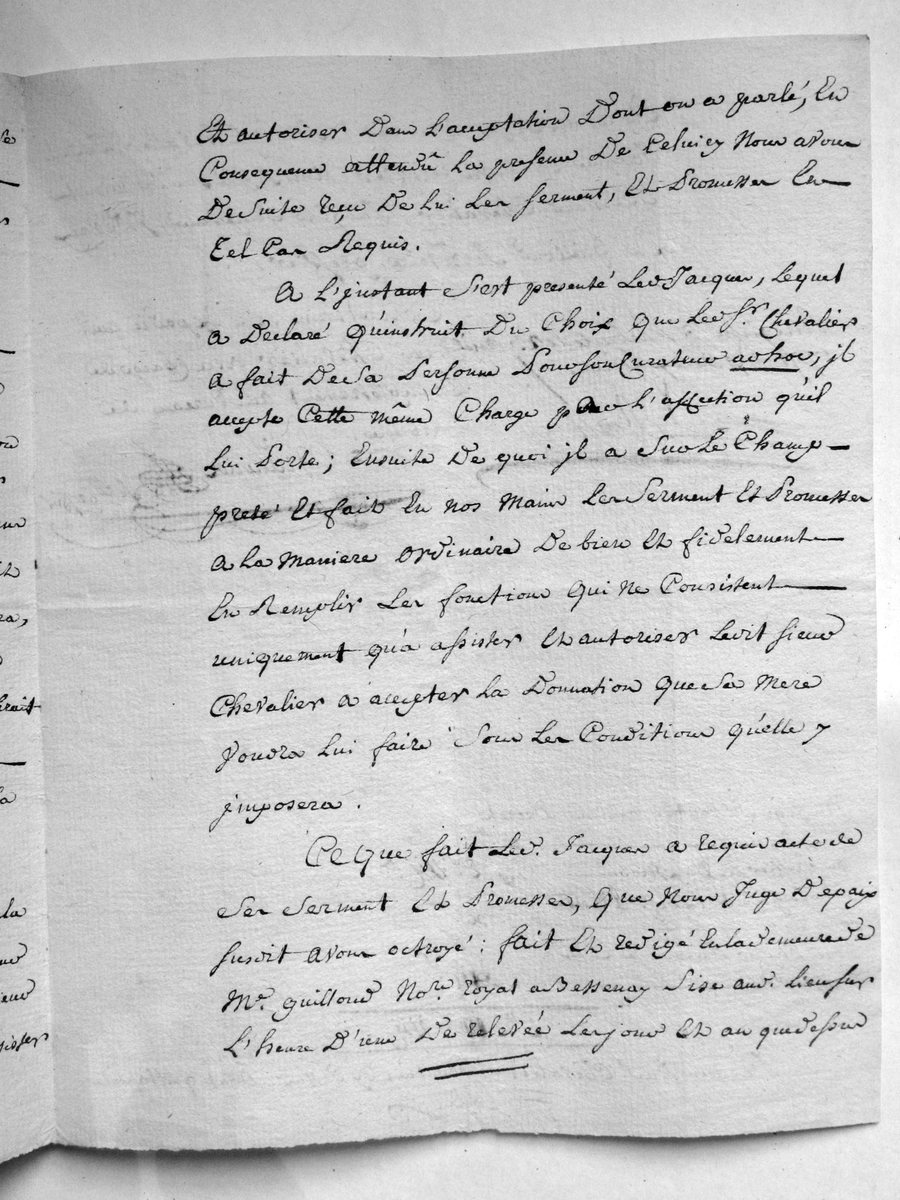 Et autoriser Dans L'acceptation Dont on a parlé, En
Consequence attendû La presence De Celuicy Nous avons
De Suite reçu De Lui Les Serment, Et Promesses En
Tel Cas Requis.
A L'jnstant S'est presenté Led Jacques, Lequel
a Declaré qu'instruit Du Choix que Led Sr. Chevalier
a fait De Sa Personne Pour Son Curateur ad hoc, jl
accepte Cette même Charge par L'affection qu'il
Lui Porte; Ensuite De quoi jl a Sur Le Champ
preté Et fait En nos Mains Les Serment Et Promesses
a La Maniere Ordinaire De bien Et fidelement
En Remplir Les fonctions Qui Ne Consistent
uniquement qu'a assister Et autoriser Ledit Sieur
Chevalier a accepter La Donnation Que Sa Mere
Voudra Lui faire Sous Les Conditions qu'elle y
jmposera.
Ce Que fait Led. Jacques a requis acte de
Ses Serment Et Promesses, Que Nous Juge De paix
Susdit avons octroyé: fait Et redigé En La demeure de
Me. guilloud Nore. royal a Bessenay Sise aud. Lieu Sur
L'heure D'une De relevée Les jour Et an que dessus